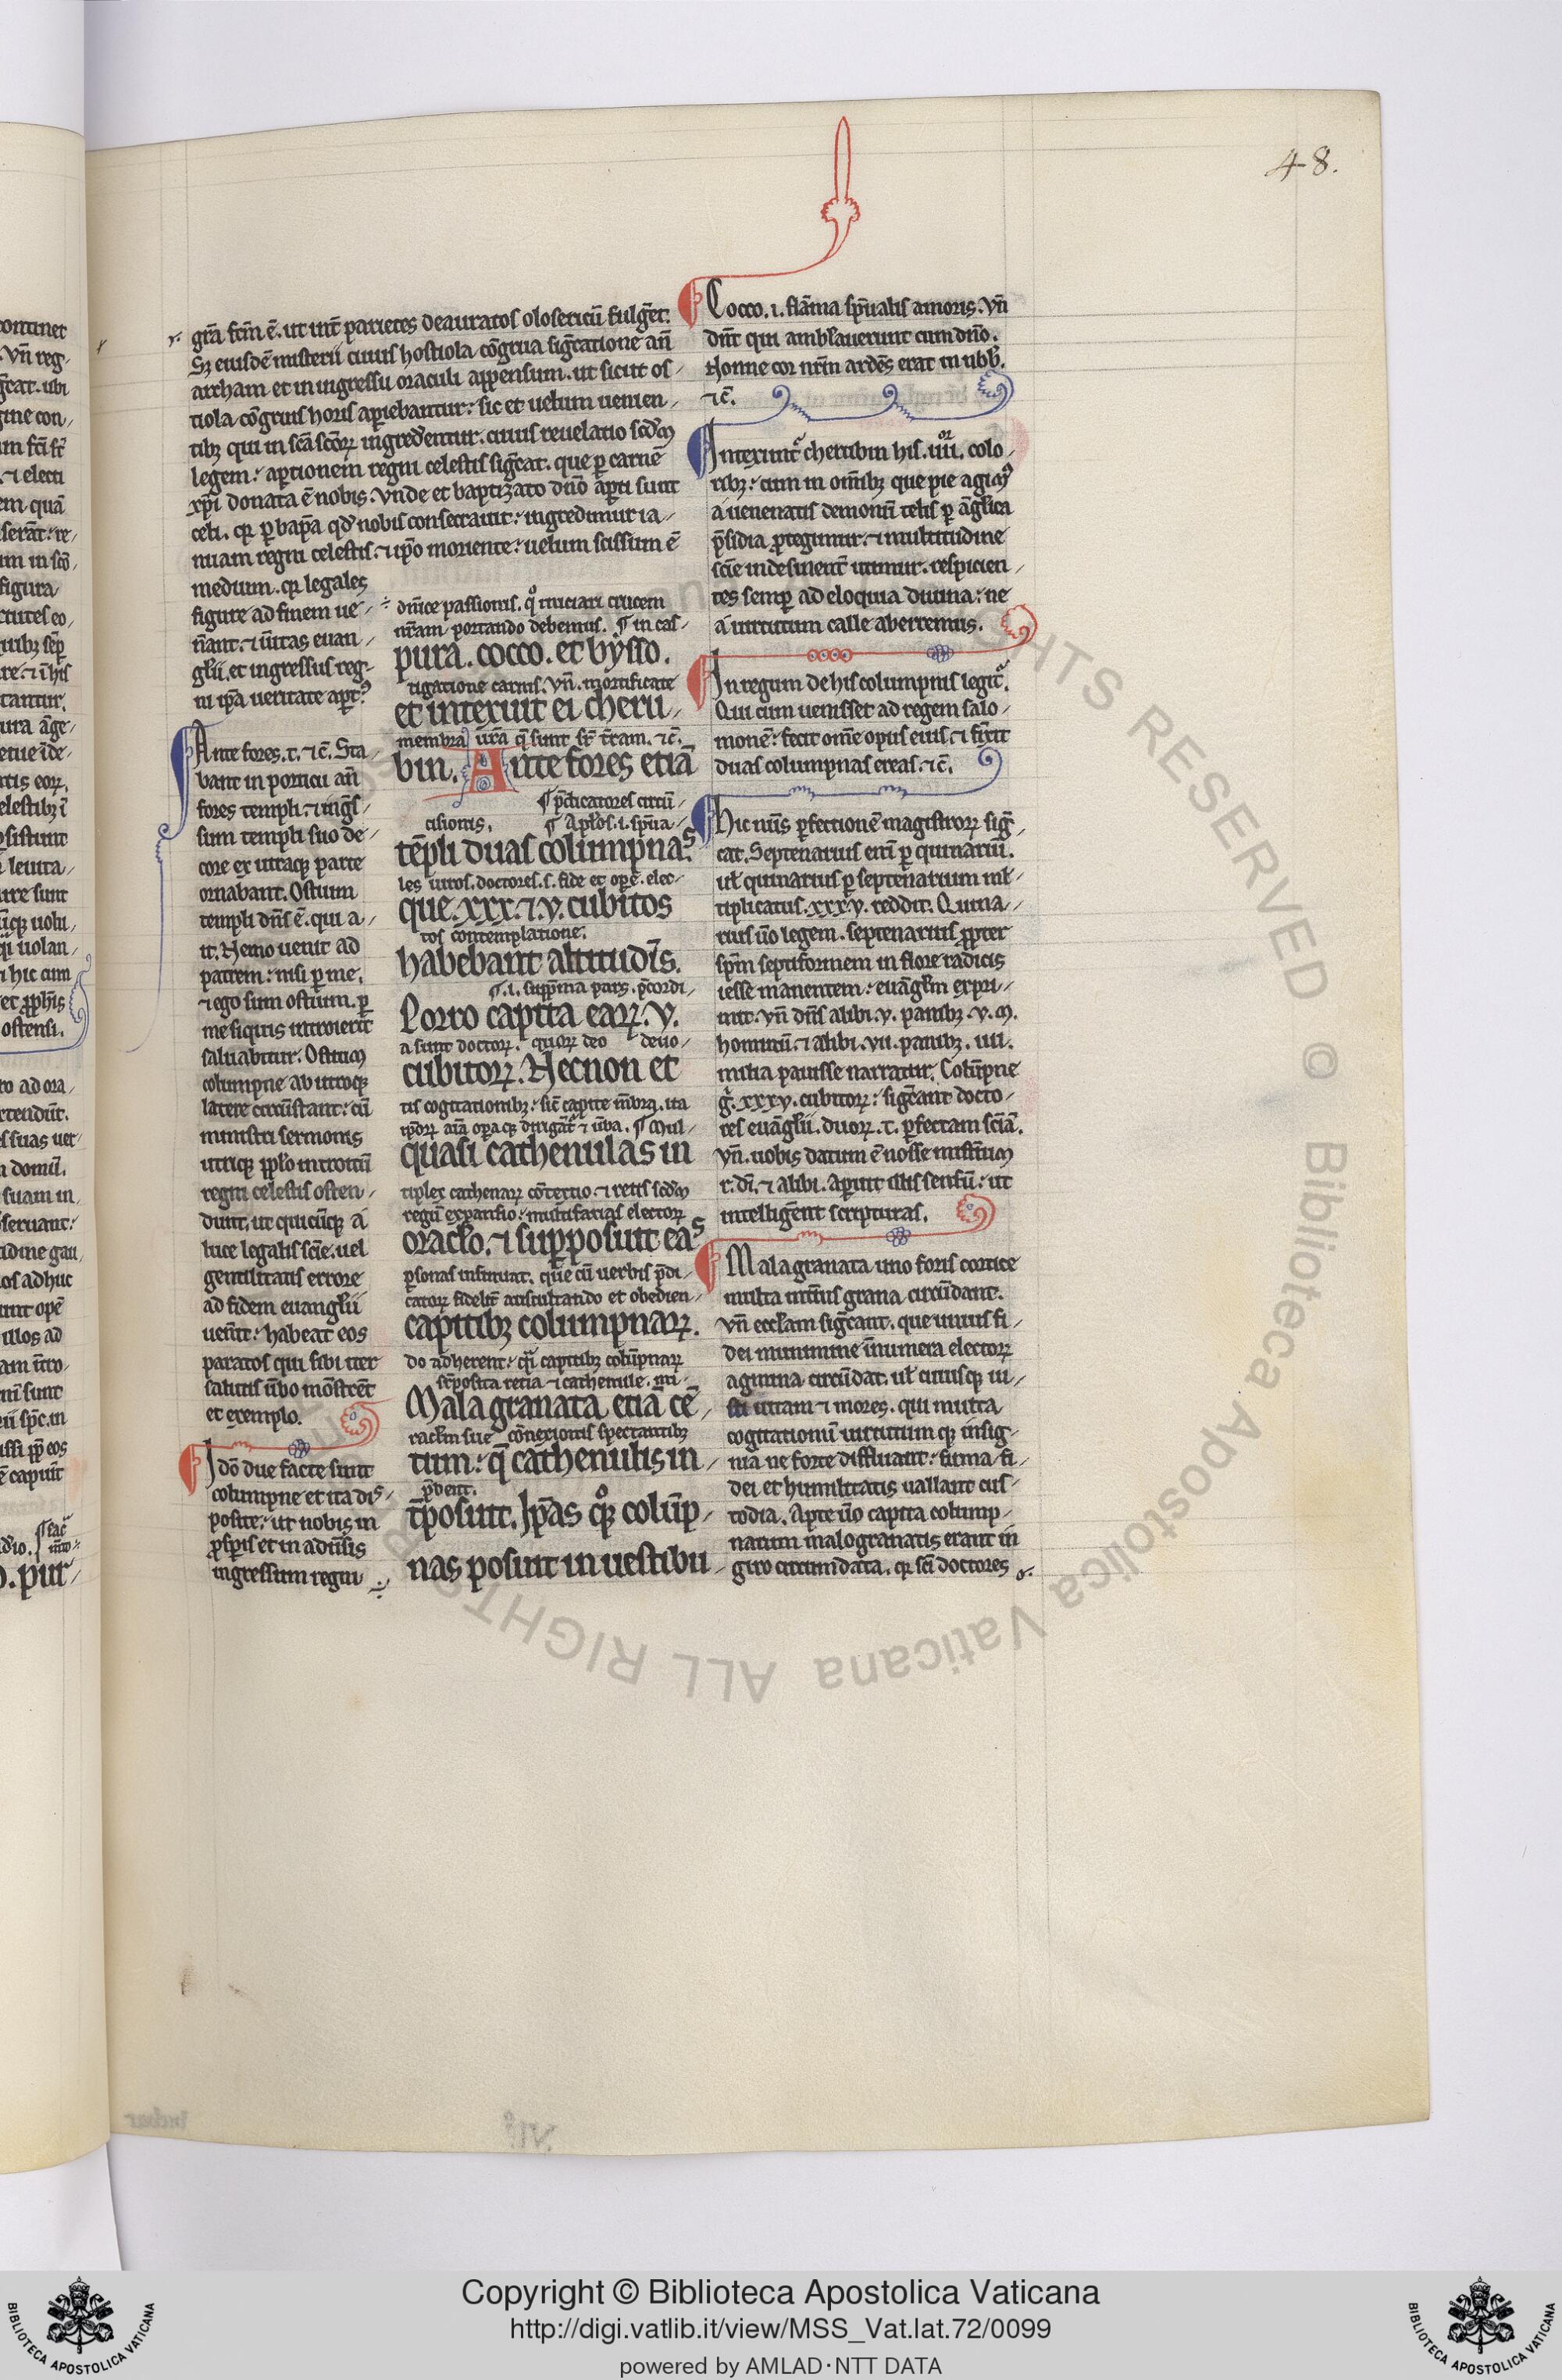 48.
gr̄a fcm̄ ē. ut int̄ parietes deauratos olosericū fulgēt.
Sȝ eiusdē misterii cuius hostiola cōgrua sigcatione an̄
archam et in ingressu oraculi appensum. ut sicut os
tiola cōgruis horis apiebantur: sic et uelum uenien
tibȝ qui in scā scōrꝝ ingrederentur. cuius reuelatio scd̄m
legem: apertionem regni celestis sigcat. que p carnē
xp̄i donata ē nobis. Vnde et baptizato dn̄o apti sunt
celi. qꝛ p bap̄a qd̄ nobis consecrauit: ingredimur ia
nuam regni celestis. ⁊ ip̄o moriente: uelum scissum ē
medium. qꝛ legales
figure ad finem ue
n̄ant. ⁊ ūitas euan
glii. et ingressus reg
ni ip̄a ueritate aptꝰ
Ante fores. t. ⁊c̄. Sta
bant in porticu an̄
fores templi. ⁊ ings̄
sum templi suo de
core ex utraqꝫ parte
ornabant. Ostium
templi dn̄s ē. qui a
it. Nemo uenit ad
patrem: nisi p me.
⁊ ego sum ostium. p
me siquis introierit
saluabitur. Ostium
columpne ab utroqꝫ
latere circūstant: cū
ministri sermonis
utriqꝫ pplo introitū
regni celestis osten
dunt. ut quicūqꝫ a
luce legalis scīe. uel
gentilitatis errore
ad fidem euanglii
uen̄it: habeat eos
paratos qui sibi iter
salutis ūbo mōstrēt
et exemplo.
Ido due facte sunt
columpne et ita dis
posite: ut nobis in
pspis et in adūsis
ingressum regni
om̄ice passionis. qͦ nuciari crucem
nr̄am portando debemus. ¶ in cas
pura. cocco. et bysso.
tigatione carnis. Vn̄. mortificate
et intexuit ei cheru
membra ur̄a q̄ sunt sr̄ tr̄am. ⁊c̄.
bin. Ante fores etiā
¶ p̄dicatores circū
cisionis. ¶ Ap̄los. i. spūa
tēpli duas columpnas
les uiros. doctores. s. fide et opē. elec
que. xxx. ⁊. v. cubitos
tos contemplatione.
habebant altitudīs.
¶. i. supp̄ma pars. p̄cordi
Porro capita earꝝ. v.
a sunt doctorꝝ. quorꝝ deo deuo
cubitorꝝ. Necnon et
tis cogitationibȝ: sic̄ capite mēbra. ita
ip̄orꝝ aīa opaqꝫ dirigāt̄ ⁊ ūba. ¶ Mul
quasi cathenulas in
tiplex cathenarꝝ cōtextio. ⁊ retis scd̄m
regū expansio: multifarias electorꝝ
oraclo. ⁊ supposuit eas
psonas insinuat. que cū uerbis p̄di
catorꝝ fidelit̄ auscultando et obedien
capitibȝ columpnarꝝ.
do adherent: qͣi capitibȝ colūpnarꝝ
supposita retia ⁊ cathenule. mi
Malagranata etiā cē
raclm sue cōnexionis spectantibȝ
tum: q̄ cathenulis in
p̄bent.
t̄posuit. Ip̄as qͦqꝫ colūp
nas posuit in uestibu
Cocco. i. flāma spūalis amoris. Vn̄
dn̄t qui amblauerunt cum dn̄o.
Nonne cor nr̄m ardēs erat in nob̄.
⁊c̄.
Intexunt̄ cherubin his. iiii. colo
ribȝ: cum in om̄ibȝ que pie agimꝰ
a uenenatis demonū telis p āglica
p̄sidia ptegimur. ⁊ multitudine
scīe indesinent̄ utimur. respicien
tes semp ad eloquia diuina: ne
a uirtutum calle aberremus.
In regum de his columpnis legit̄.
Qui cum uenisset ad regem salo
monē: fecit om̄e opus eius. ⁊ finxit
duas columpnas ereas. ⁊c̄.
Hic nūs pfectionē magistrorꝝ sig
cat. Septenarius eni p quinariū.
ul̄ quinarius p septenarium ml̄
tiplicatus. xxxv. reddit. Quina
rius ūo legem. septenarius ppter
spm̄ septiformem in flore radicis
iesse manentem: euāglm expri
mit. Vn̄ dn̄s alibi. v. panibȝ. v. m̄.
hominū. ⁊ alibi. vii. panibȝ. iiii.
milia pauisse narratur. Colūpne
g̊. xxxv. cubitorꝝ: sigcant docto
res euāglii. duorꝝ. t. pfectam sciā.
Vn̄. uobis datum ē nosse misterium
r. dī. ⁊ alibi. Apuit illis sensū: ut
intelligēnt scripturas.
Malagranata uno foris cortice
multa intius grana circūdant.
Vn̄ ecclam sigcant. que unius fi
dei munimine īnumera electorꝝ
agmina circūdat. ul̄ cuiusqꝫ iu
sti uitam ⁊ mores. qui multa
cogitationū uirtutum qꝫ insig
nia ne forte diffluant: firma fi
dei et humilitatis uallant cus
todia. Apte ūo capita colump
narum malogranatis erant in
giro circumdata. qꝛ sci doctores
Copyright © Biblioteca Apostolica Vaticana
http://digi.vatlib.it/view/MSS_Vat.lat.72/0099
powered by AMLAD·NTT DATA